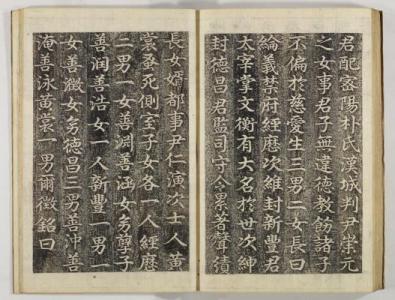 君配密陽朴氏漢城判尹崇元
之女事君子無違德教飭諸子
不偏於慈愛生三男二女長曰
綸義禁府經歷次維封新豐君
太宰掌文衡有大名於世次紳
封德昌君監司守令累著聲績
長女婿都事尹仁演次士人黃
裳蚤死側室子女各一人 經歷
二男一女善淵善涵女幼孼子
善潤善浩女一人新豐一男一
女善澂女幼德昌三男善沖善
淹善泳黃裳一男爾徵銘曰